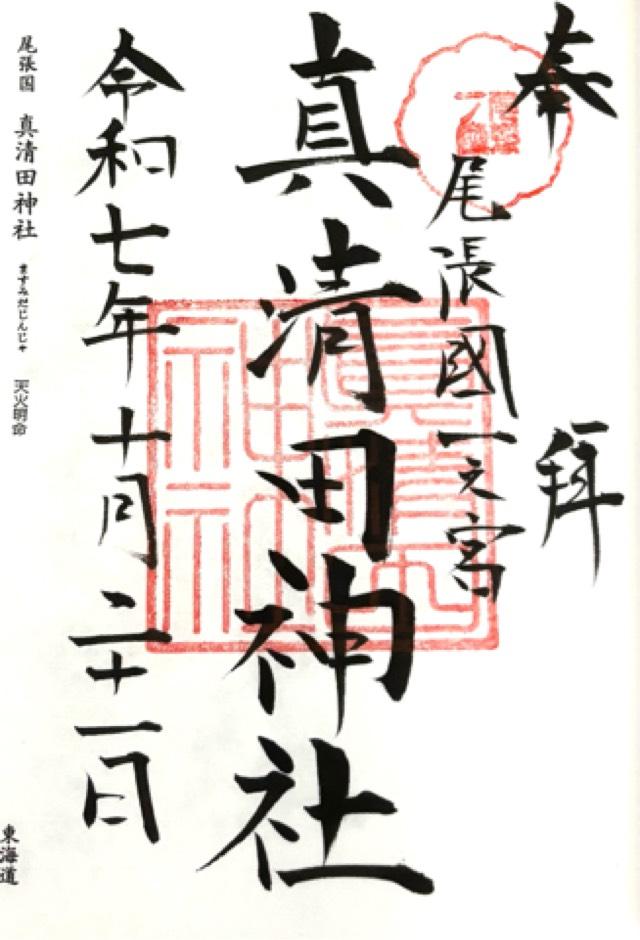 奉拝
尾張國一之宮
真清田神社
令和七年十月二十一日
尾張国 真清田神社 ますみだじんじゃ 天火明命
東海道